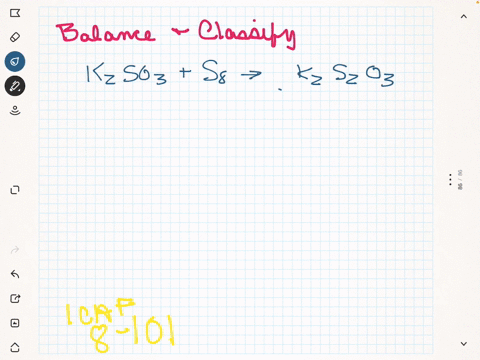 Balance ~ Classify
K₂SO₃ + S₈ → K₂S₂O₃
ICAF
8-101
86 / 86